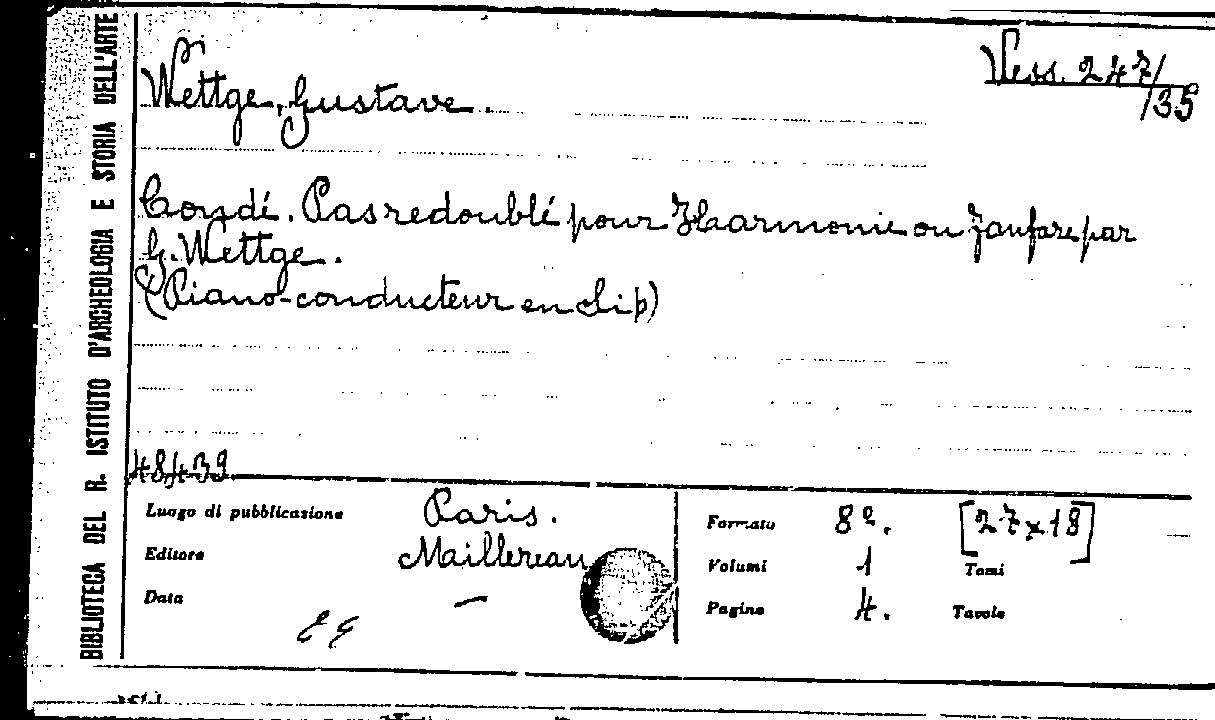 Wettge, Gustave.
Vess. 247/
/35
Condé. Pas redoublé pour Harmonie ou Fanfare par
G. Wettge.
(Piano-conducteur en si b)
48439
BIBLIOTECA DEL R. ISTITUTO D'ARCHEOLOGIA E STORIA DELL'ARTE
Luogo di pubblicazione Paris.
Editore Maillereau
Data —
Formato 8º. [27x18]
Volumi 1 Tomi
Pagine 4. Tavole